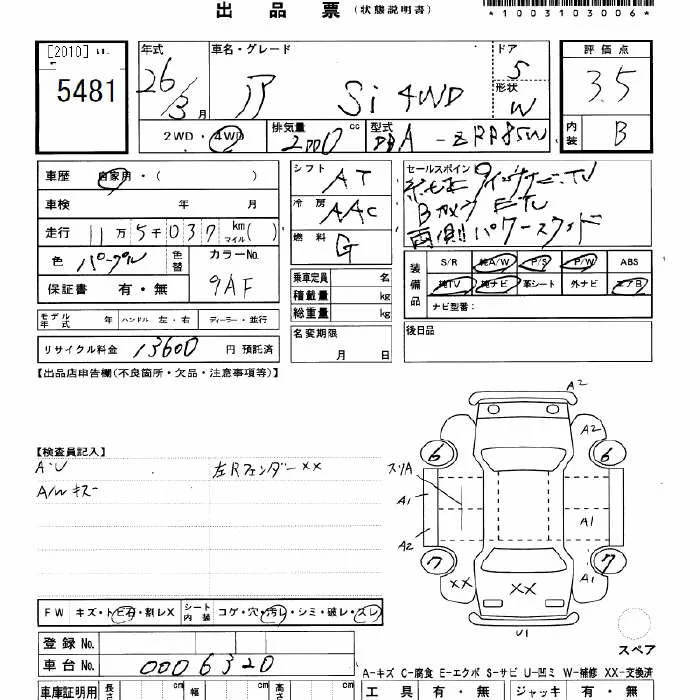 出品票 (状態説明書)
*1003103006*
[2010]
5481
年式 車名・グレード ドア 評価点
26/3月 Si 4WD 5 3.5
形状 W
2WD・4WD 排気量 2000 cc 型式 DBA-ZRR85W 内装 B
車歴 自家用・( )
シフト AT
セールスポイント
車検 年 月
冷房 AAC
Bカメラ ETC
走行 11万5千037 km マイル( )
燃料 G
両側パワースライド
色 パープル 色替 カラーNo. 9AF
保証書 有・無
乗車定員 名
積載量 kg
総重量 kg
装備品 S/R 純A/W P/S P/W ABS
純TV 純ナビ 革シート 外ナビ エアB
ナビ型番：
モデル年式 年 ハンドル 左・右 ディーラー・並行
名変期限 月 日
後日品
リサイクル料金 13600 円 預託済
【出品店申告欄(不良箇所・欠品・注意事項等)】
【検査員記入】
A・U 左Rフェンダー××
A/Wキズ
A2
A2
6 6
スリA
A1 A1
A2
7 7
A1
×× ××
U1
スペア
FW キズ・トビ石・割レX シート内装 コゲ・穴・汚レ・シミ・破レ・スレ
登録 No.
車台 No. 0006320
A-キズ C-腐食 E-エクボ S-サビ U-凹ミ W-補修 XX-交換済
車庫証明用 長さ cm 幅 cm 高さ cm 工具 有・無 ジャッキ 有・無